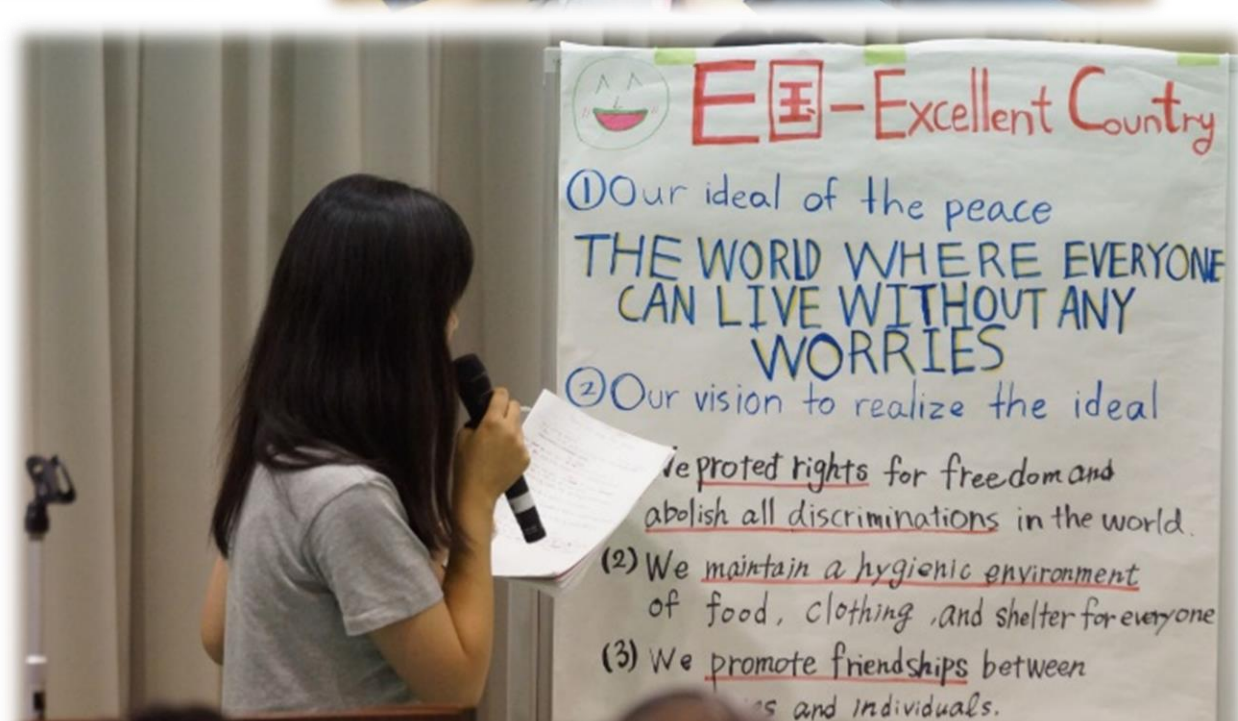 E国-Excellent Country
①Our ideal of the peace
THE WORLD WHERE EVERYONE
CAN LIVE WITHOUT ANY
WORRIES
②Our vision to realize the ideal
proted rights for freedom and
abolish all discriminations in the world.
(2) We maintain a hygienic environment
of food, clothing ,and shelter for everyone
(3) We promote friendships between
and individuals.